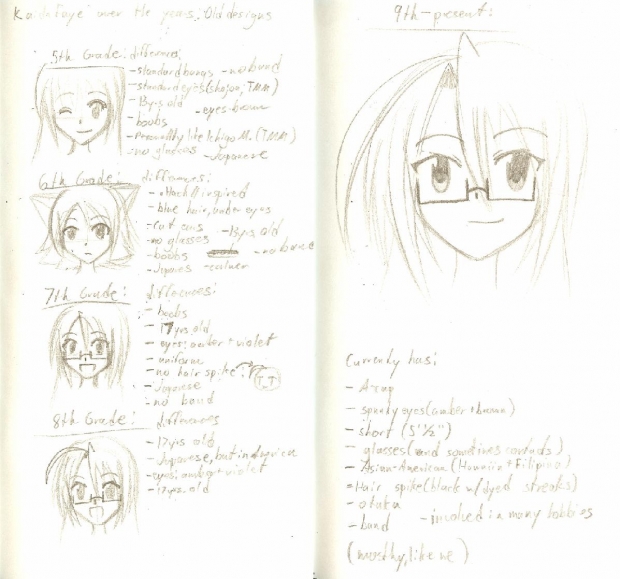 Kaida Faye over the years: Old designs
5th Grade: differences:
- standard bangs - no band
- standard eyes (shojou, TMM)
- 13yrs old
- eyes-brown
- boobs
- Personality like Ichigo M. (TMM)
- no glasses - Japanese
6th Grade: differences:
- .hack// inspired
- blue hair, amber eyes
- cat ears
- 13yrs old
- no glasses
- boobs - no band
- Japanese - calmer
7th Grade: differences:
- boobs
- 17yrs old
- eyes: amber + violet
- uniform
- no hair spike
T_T
- Japanese
- no band
8th Grade: differences
- 17yrs old
- Japanese, but in America
- eyes: amber + violet
- 17yrs. old
9th-present:
Currently has:
- A-cup
- eyes (amber + brown)
- short (5'½")
- glasses (and sometimes contacts)
- Asian-American (Hawaiin + Filipino)
- Hair spike (black w/dyed streaks)
- otaku
- band - involved in many hobbies
(mostly, like me)